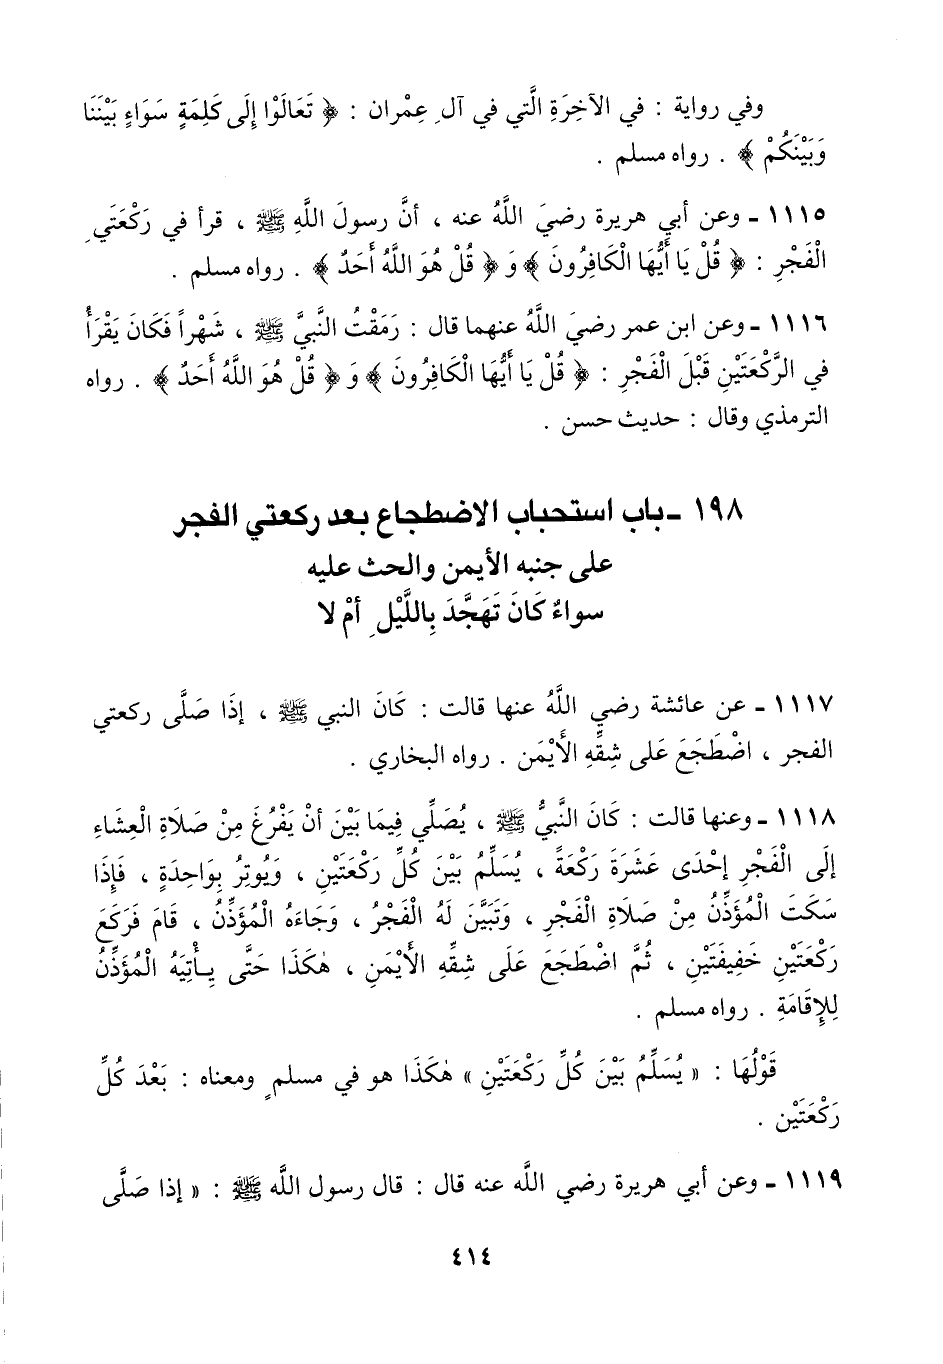 وفي رواية : في الآخِرَةِ الَّتي في آلِ عِمْران : ﴿ تَعَالَوْا إِلَى كَلِمَةٍ سَوَاءٍ بَيْنَنَا
وَبَيْنَكُمْ ﴾ . رواه مسلم .
١١١٥ - وعن أبي هريرة رضيَ اللَّهُ عنه ، أنَّ رسولَ اللَّهِ ﷺ ، قرأ في رَكْعَتَيِ
الْفَجْرِ : ﴿ قُلْ يَا أَيُّهَا الْكَافِرُونَ ﴾ وَ ﴿ قُلْ هُوَ اللَّهُ أَحَدٌ ﴾ . رواه مسلم .
١١١٦ - وعن ابن عمر رضيَ اللَّهُ عنهما قال : رَمَقْتُ النَّبِيَّ ﷺ ، شَهْراً فَكَانَ يَقْرَأُ
في الرَّكْعَتَيْنِ قَبْلَ الْفَجْرِ : ﴿ قُلْ يَا أَيُّهَا الْكَافِرُونَ ﴾ وَ ﴿ قُلْ هُوَ اللَّهُ أَحَدٌ ﴾ . رواه
الترمذي وقال : حديث حسن .
١٩٨ - باب استحباب الاضطجاع بعد ركعتي الفجر
على جنبه الأيمن والحث عليه
سواءٌ كَانَ تَهَجَّدَ بِاللَّيْلِ أمْ لا
١١١٧ - عن عائشة رضي اللَّهُ عنها قالت : كَانَ النبي ﷺ ، إذَا صَلَّى ركعتي
الفجر ، اضْطَجَعَ عَلى شِقِّهِ الأَيْمَن . رواه البخاري .
١١١٨ - وعنها قالت : كَانَ النَّبيُّ ﷺ ، يُصَلِّي فِيمَا بَيْنَ أنْ يَفْرُغَ مِنْ صَلَاةِ الْعِشَاءِ
إلَى الْفَجْرِ إحْدَى عَشَرَةَ رَكْعَةً ، يُسَلِّمُ بَيْنَ كُلِّ رَكْعَتَيْنِ ، وَيُوتِرُ بِوَاحِدَةٍ ، فَإِذَا
سَكَتَ الْمُؤَذِّنُ مِنْ صَلَاةِ الْفَجْرِ ، وَتَبَيَّنَ لَهُ الْفَجْرُ ، وَجَاءَهُ الْمُؤَذِّنُ ، قَامَ فَرَكَعَ
رَكْعَتَيْنِ خَفِيفَتَيْنِ ، ثُمَّ اضْطَجَعَ عَلَى شِقِّهِ الأَيْمَنِ ، هٰكَذَا حَتَّى يَأْتِيَهُ الْمُؤَذِّنُ
لِلإِقَامَةِ . رواه مسلم .
قَوْلُهَا : « يُسَلِّمُ بَيْنَ كُلِّ رَكْعَتَيْنِ » هٰكَذَا هو في مسلمٍ ومعناه : بَعْدَ كُلِّ
رَكْعَتَيْنِ .
١١١٩ - وعن أبي هريرة رضي اللَّه عنه قال : قال رسول اللَّه ﷺ : « إذا صَلَّى
٤١٤